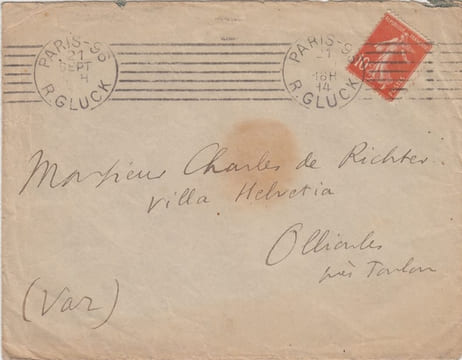 PARIS-96
21
SEPT
14
R. GLUCK
PARIS-9
21
18H
14
R. GLUCK
10c
Monsieur Charles de Richter
Villa Helvetia
Ollioules
près Toulon
(Var)